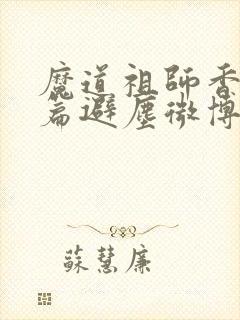 魔道祖師香
篇避塵微博
蘇慧廉